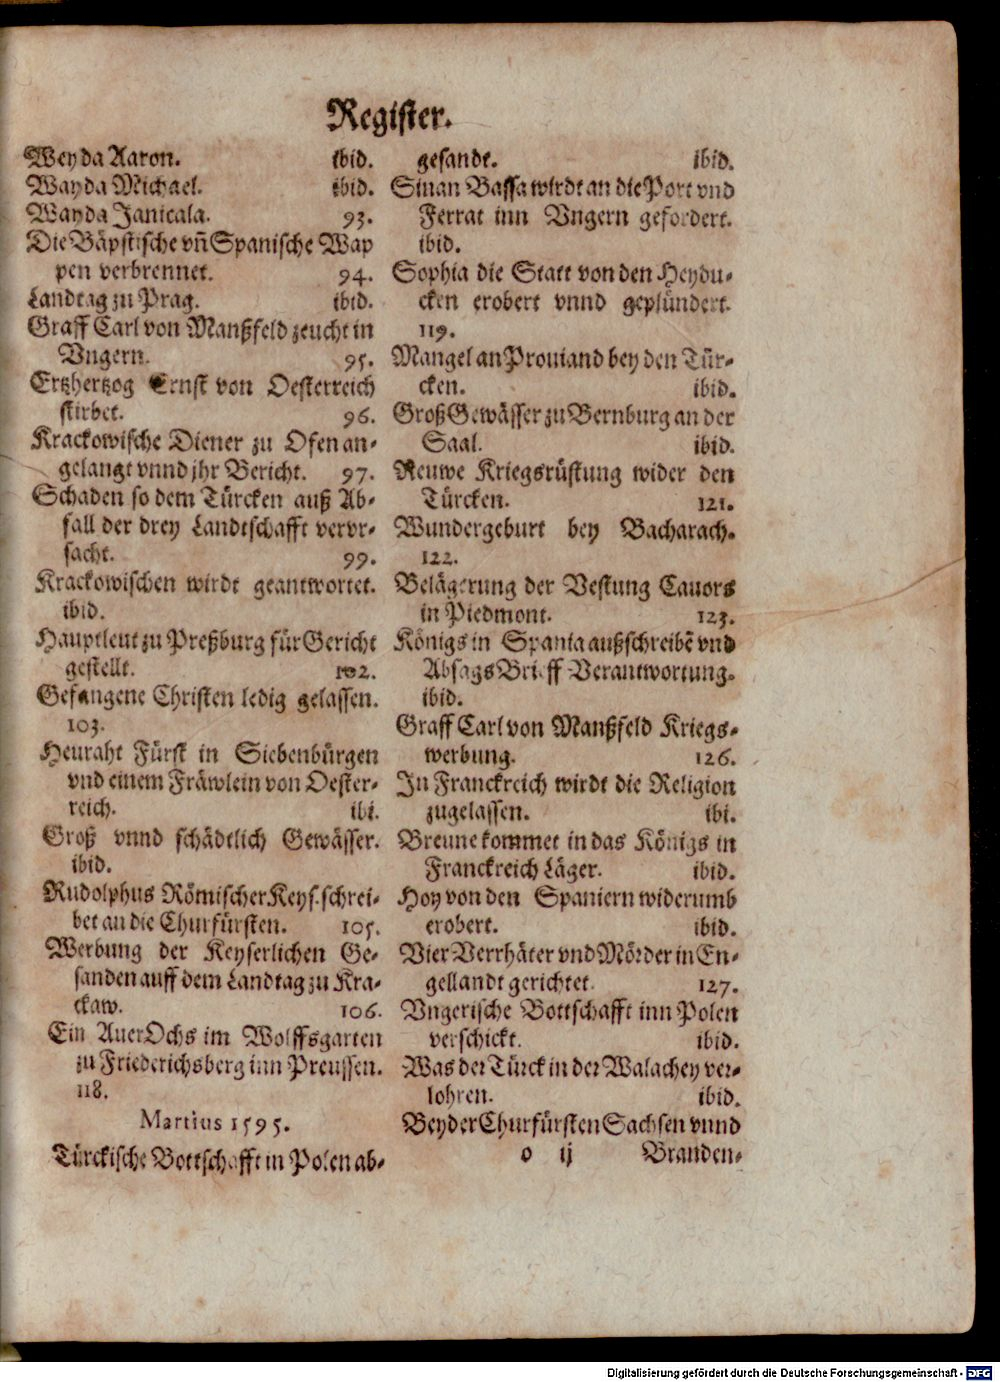 Register.
Weyda Aaron. ibid.
Wayda Michael. ibid.
Wayda Janicala. 93.
Die Bäpstische vñ Spanische Wap
pen verbrennet. 94.
Landtag zu Prag. ibid.
Graff Carl von Manßfeld zeucht in
Vngern. 95.
Ertzhertzog Ernst von Oesterreich
stirbet. 96.
Krackowische Diener zu Ofen an-
gelangt vnnd jhr Bericht. 97.
Schaden so dem Türcken auß Ab-
fall der drey Landtschafft vervr-
sacht. 99.
Krackowischen wirdt geantwortet.
ibid.
Hauptleut zu Preßburg für Gericht
gestellt. 102.
Gefangene Christen ledig gelassen.
103.
Heuraht Fürst in Siebenbürgen
vnd einem Fräwlein von Oester-
reich. ibi.
Groß vnnd schädtlich Gewässer.
ibid.
Rudolphus Römischer Keys. schrei-
bet an die Churfürsten. 105.
Werbung der Keyserlichen Ge-
sanden auff dem Landtag zu Kra-
ckaw. 106.
Ein AuerOchs im Wolffsgarten
zu Friederichsberg inn Preussen.
118.
Martius 1595.
Türckische Bottschafft in Polen ab-
gesandt. ibid.
Sinan Bassa wirdt an die Port vnd
Ferrat inn Vngern gefordert.
ibid.
Sophia die Statt von den Heydu-
cken erobert vnnd geplündert.
119.
Mangel an Prouiand bey den Tür-
cken. ibid.
Groß Gewässer zu Bernburg an der
Saal. ibid.
Neuwe Kriegsrüstung wider den
Türcken. 121.
Wundergeburt bey Bacharach.
122.
Belägerung der Vestung Cauors
in Piedmont. 123.
Königs in Spania außschreibẽ vnd
Absags Brieff Verantwortung.
ibid.
Graff Carl von Manßfeld Kriegs-
werbung. 126.
In Franckreich wirdt die Religion
zugelassen. ibi.
Breune kommet in das Königs in
Franckreich Läger. ibid.
Hoy von den Spaniern widerumb
erobert. ibid.
Vier Verrhäter vnd Mörder in En-
gellandt gerichtet. 127.
Vngerische Bottschafft inn Polen
verschickt. ibid.
Was der Türck in der Walachey ver-
lohren. ibid.
Beyder Churfürsten Sachsen vnnd
o ij Branden-
Digitalisierung gefördert durch die Deutsche Forschungsgemeinschaft - DFG